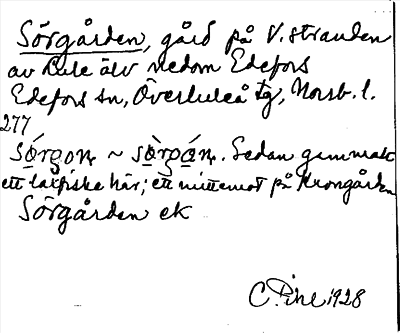 Sörgården, gård på V. stranden
av Lule älv nedom Edefors
Edefors sn, Överluleå tg, Norrb. l.
277
sǫ́rgon ~ sǫ̀rgán. Sedan gammalt
ett laxfiske här; ett mittemot på Krongården
Sörgården ek
C. Pihl 1928